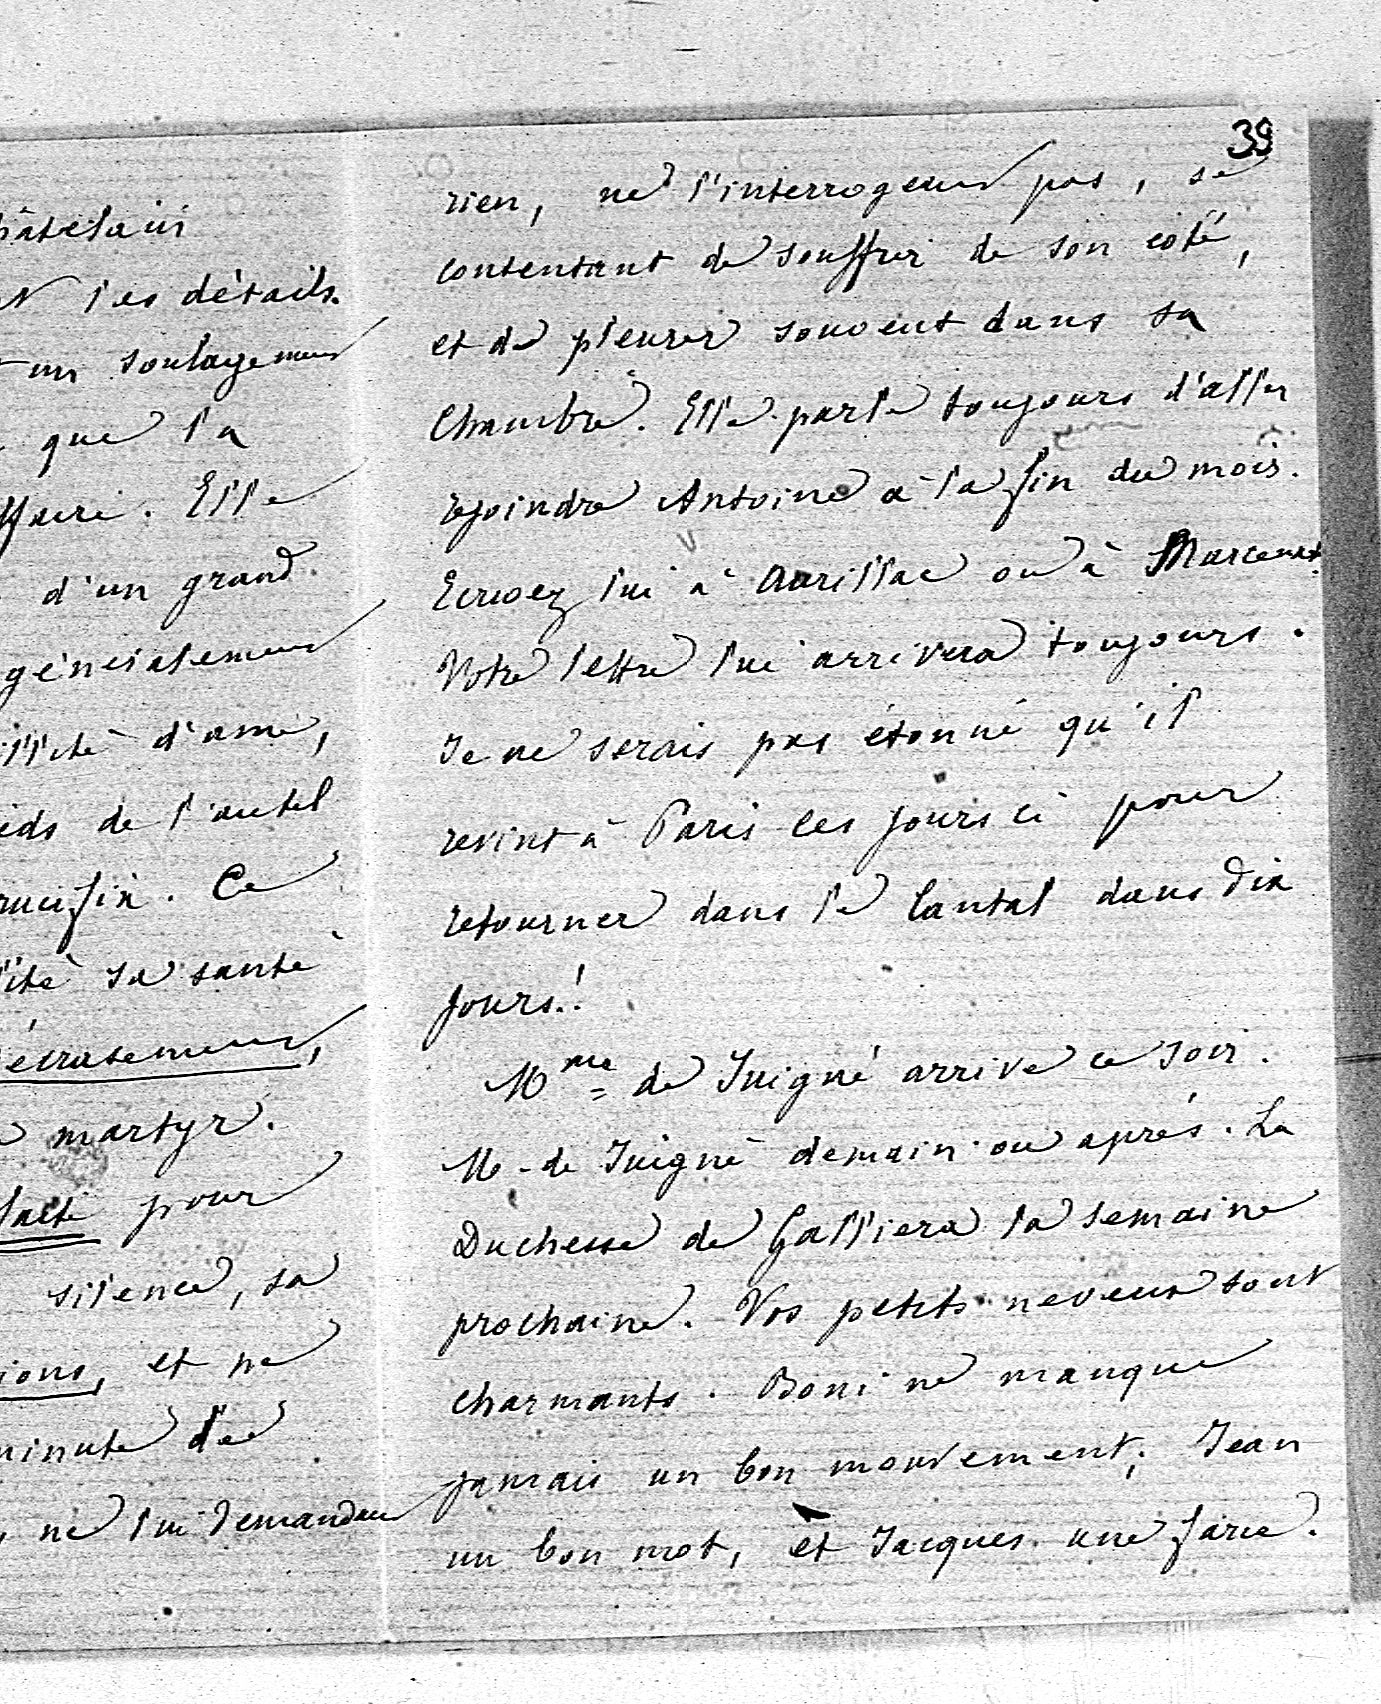 hâtelain
les détails.
un soulagement
que la
ffaire. Elle
d'un grand
généralement
illité d'ame,
ieds de l'autel
rucifix. Ce
lité sa santé
écrasement,
martyr.
pour
silence, sa
ions, et ne
minute de
ne lui demandant
39
rien, ne l'interrogeant pas, se
contentant de souffrir de son coté,
et de pleurer souvent dans sa
Chambre. Elle parle toujours d'aller
rejoindre Antoine à la fin du mois.
Ecrivez lui à Aurillac ou à Marcenat.
Votre lettre lui arrivera toujours.
Je ne serais pas étonné qu'il
revint à Paris ces jours ci pour
retourner dans le Cantal dans dix
jours!
Mme de Juigné arrive ce soir.
M. de Juigné demain ou après. La
Duchesse de Galliera la semaine
prochaine. Vos petits neveux sont
charmants. Boni ne manque
jamais un bon mouvement, Jean
un bon mot, et Jacques une farce.